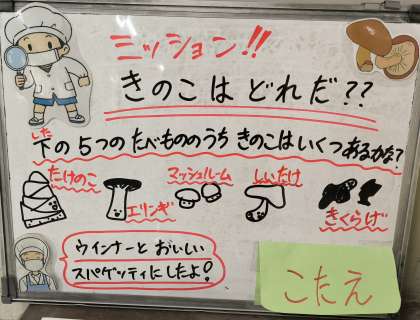 ミッション!!
きのこはどれだ??
下の5つのたべもののうちきのこはいくつあるかな?
した
たけのこ
エリンギ
マッシュルーム
しいたけ
きくらげ
ウインナーとおいしい
スパゲッティにしたよ!
こたえ